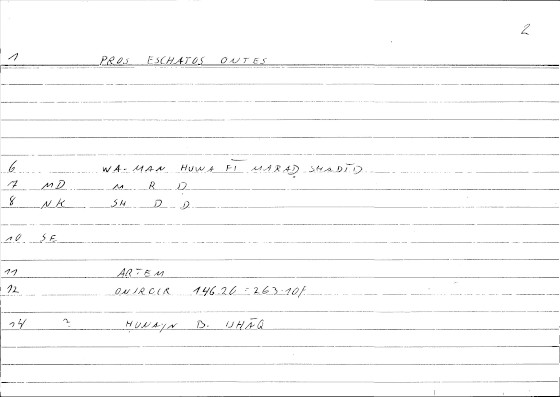 2
1 PROS ESCHATOS ONTES
6 WA-MAN HUWA FĪ MARAḌ SHADĪD
7 MD M R Ḍ
8 NK SH D D
10 SE
11 ARTEM
12 ONIROCR 146.20 = 263.10
14 ? HUNAYN B. ISḤĀQ